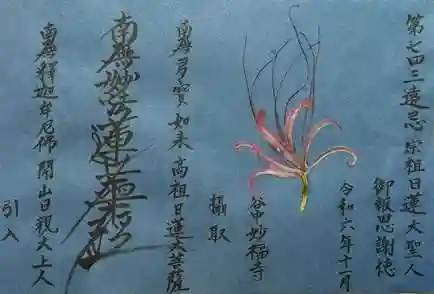 第七四三遠忌宗祖日蓮大聖人
御報恩謝徳
令和六年十一月
谷中妙福寺
攝取
南無多寳如来 高祖日蓮大菩薩
南無妙法蓮華経
南無釋迦牟尼佛 開山日親大上人
引入